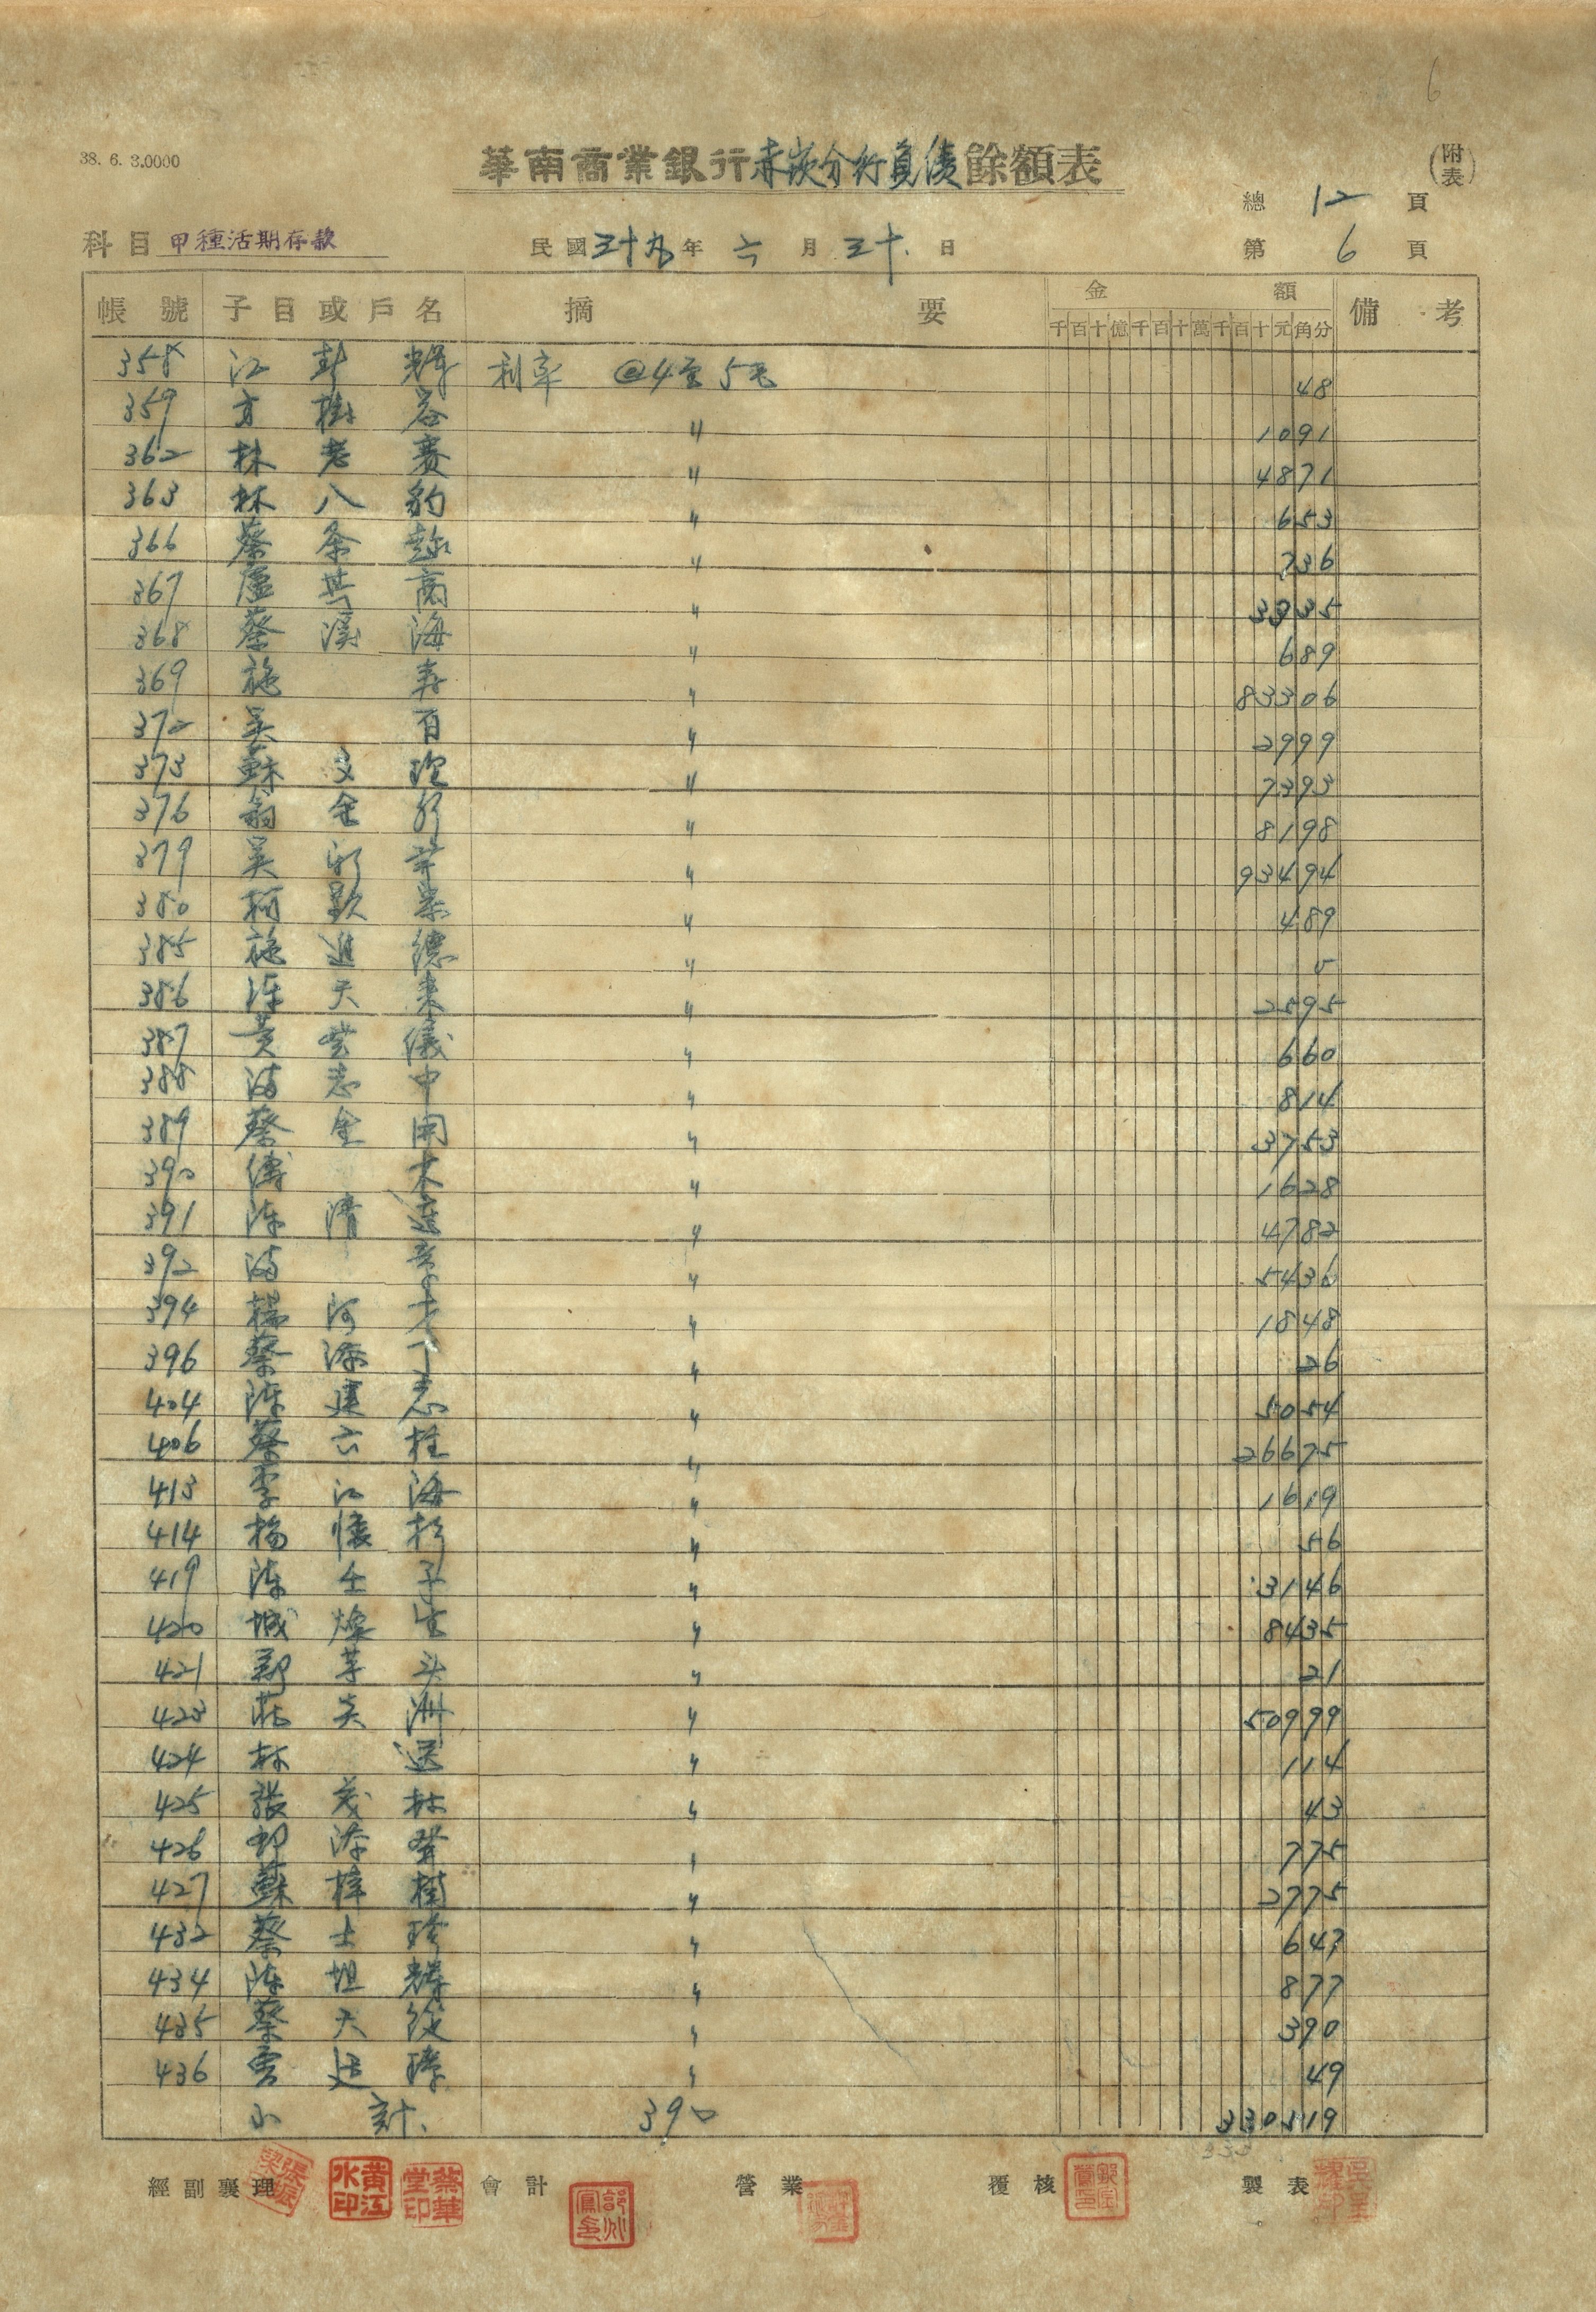 6
38. 6. 3.0000
華南商業銀行赤崁分行負債餘額表
(附表)
總 12 頁
科目 甲種活期存款 民國三十九年 六 月 三十 日 第 6 頁
帳號 子目或戶名 摘要 金額 備考
千百十億千百十萬千百十元角分
358 江 輝 利率 @4至5毛 48
359 方樹 〃 1091
362 林老賽 〃 4871
363 林八豹 〃 653
366 蔡 〃 736
367 盧 〃 3935
368 蔡溪海 〃 689
369 施 壽 〃 83306
372 吳 百 〃 2999
373 蘇文 〃 7393
376 翁金 〃 8198
379 吳 〃 93494
380 柯 〃 489
385 施進德 〃 5
386 陳天來 〃 2595
387 黃 儀 〃 660
388 潘志中 〃 814
389 蔡金開 〃 3753
390 傅 木 〃 1628
391 陳清 〃 4782
392 潘 〃 5436
394 楊河 〃 1848
396 蔡添丁 〃 26
404 陳建志 〃 5054
406 蔡六柱 〃 26675
413 李江海 〃 1619
414 楊懷 〃 56
419 陳壬子 〃 3146
420 城燦生 〃 8435
421 鄭芋头 〃 21
423 莊炎洲 〃 50999
424 林 送 〃 114
425 張茂林 〃 43
426 添登 〃 775
427 蘇梓樹 〃 2775
432 蔡士珍 〃 643
434 陳坦輝 〃 877
435 蔡天 〃 390
436 廷璋 〃 49
小計. 390 330519
經副襄理 會計 營業 覆核 製表
黃江水印
蔡華堂印